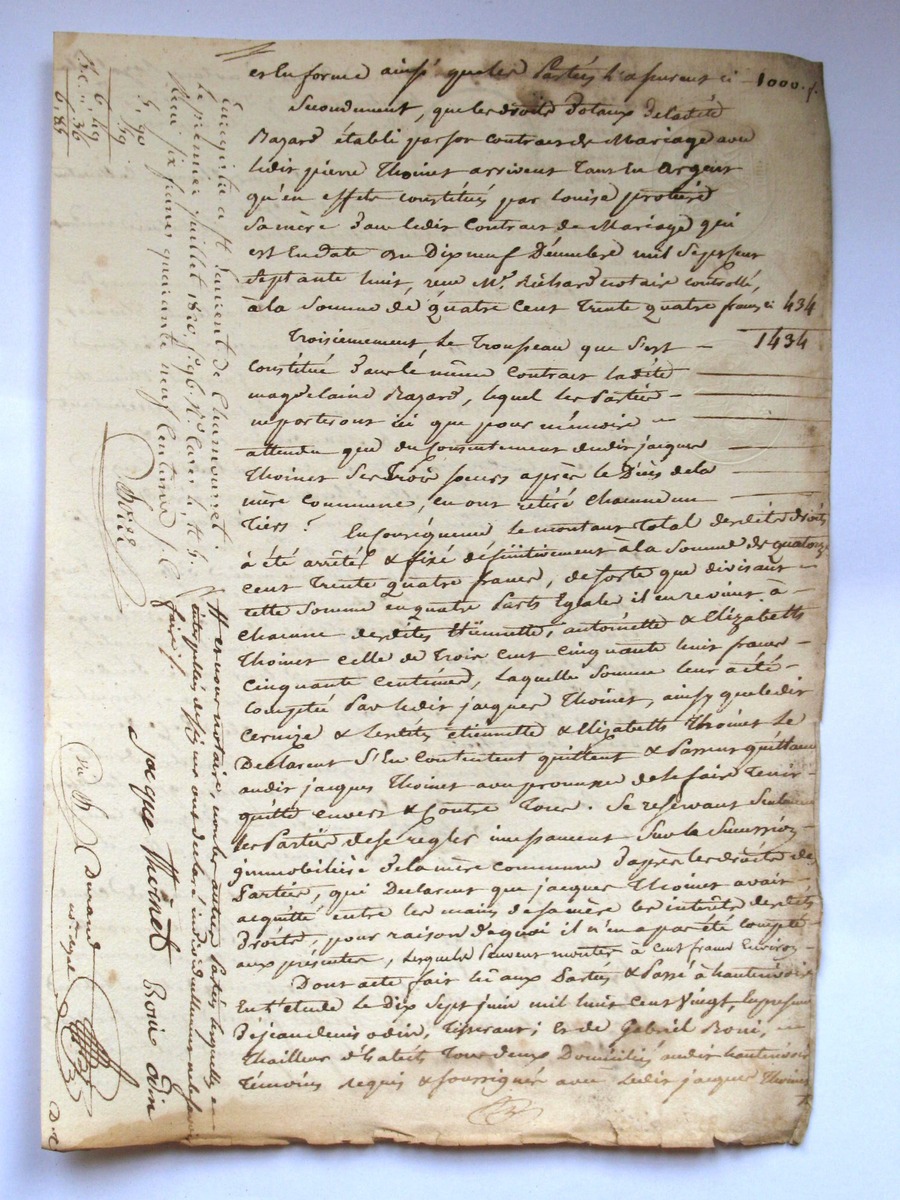 est en forme ainsi que les Parties l'assurent ci 1000. f.
Secondement, que les droits dotaux de la dite
Bazard établi par son contrat de Mariage avec
ledit pierre Thoinet arrivent tant en Argent
qu'en effets constitués par Louise
sa mère dans ledit Contrat de Mariage qui
est en date du Dix neuf Décembre mil Sept cent
Septante huit, reçu Me. Richard notaire controllé,
à la Somme de quatre cent Trente quatre francs ci 434
1434
Troisiemement le Trousseau que s'est
constitué dans le même Contrat ladite
magdelaine Bazard, lequel les Parties
ne porteront ici que pour mémoire
attendu que du consentement dudit jacques
Thoinet Ses Trois soeurs après le Décès de la
mère commune, en ont retiré chacune un
Tiers.
En conséquence le montant Total desdits droits
à été arrêté & fixé définitivement à la Somme de quatorze
cent Trente quatre francs, de sorte que divisant
cette Somme en quatre Parts Egales il en revient à
chacune desdites Etiennette, antoinette & Elizabeth
Thoinet celle de Trois cent cinquante huit francs
Cinquante Centimes, laquelle Somme leur a été
comptée Par ledit jacques Thoinet, ainsy que ledit
& lesdites etiennette & Elizabeth Thoinet le
Declarent S'en Contentent quittent & Passent quittance
audit jacques Thoinet avec promesse de le faire Tenir
quitte envers & Contre Tous. Se reservant Seulement
les Parties de se regler incessament Sur la Succession
immobiliere de la mère commune d'après les droits des
Parties, qui Declarent que jacques Thoinet avait
acquitté entre les mains de sa mère les interêts desdits
Droits, pour raison de quoi il n'en a pas été compté
aux présentes, lesquels Peuvent monter à Cent francs Environ
Dont acte fait lû aux Parties & Passé à
En l'étude le Dix Sept juin mil huit cent Vingt, En présence
De jean denis odin, Tisserant; Et de Gabriel Roni,
Thailleur d'habits Tous deux Domiciliés audit
Témoins requis & soussignés avec ledit jacques Thoinet
Et nous notaire, non les autres Parties lesquelles
interpellées de signer ont déclaré individuellement ne le savoir
faire
jaque thoinet Roni odin
Durand
Enregistré à St. de
le premier juillet 1820. f. 96.
Reçu six francs quarante neuf centimes
5. 90
59
6. 49